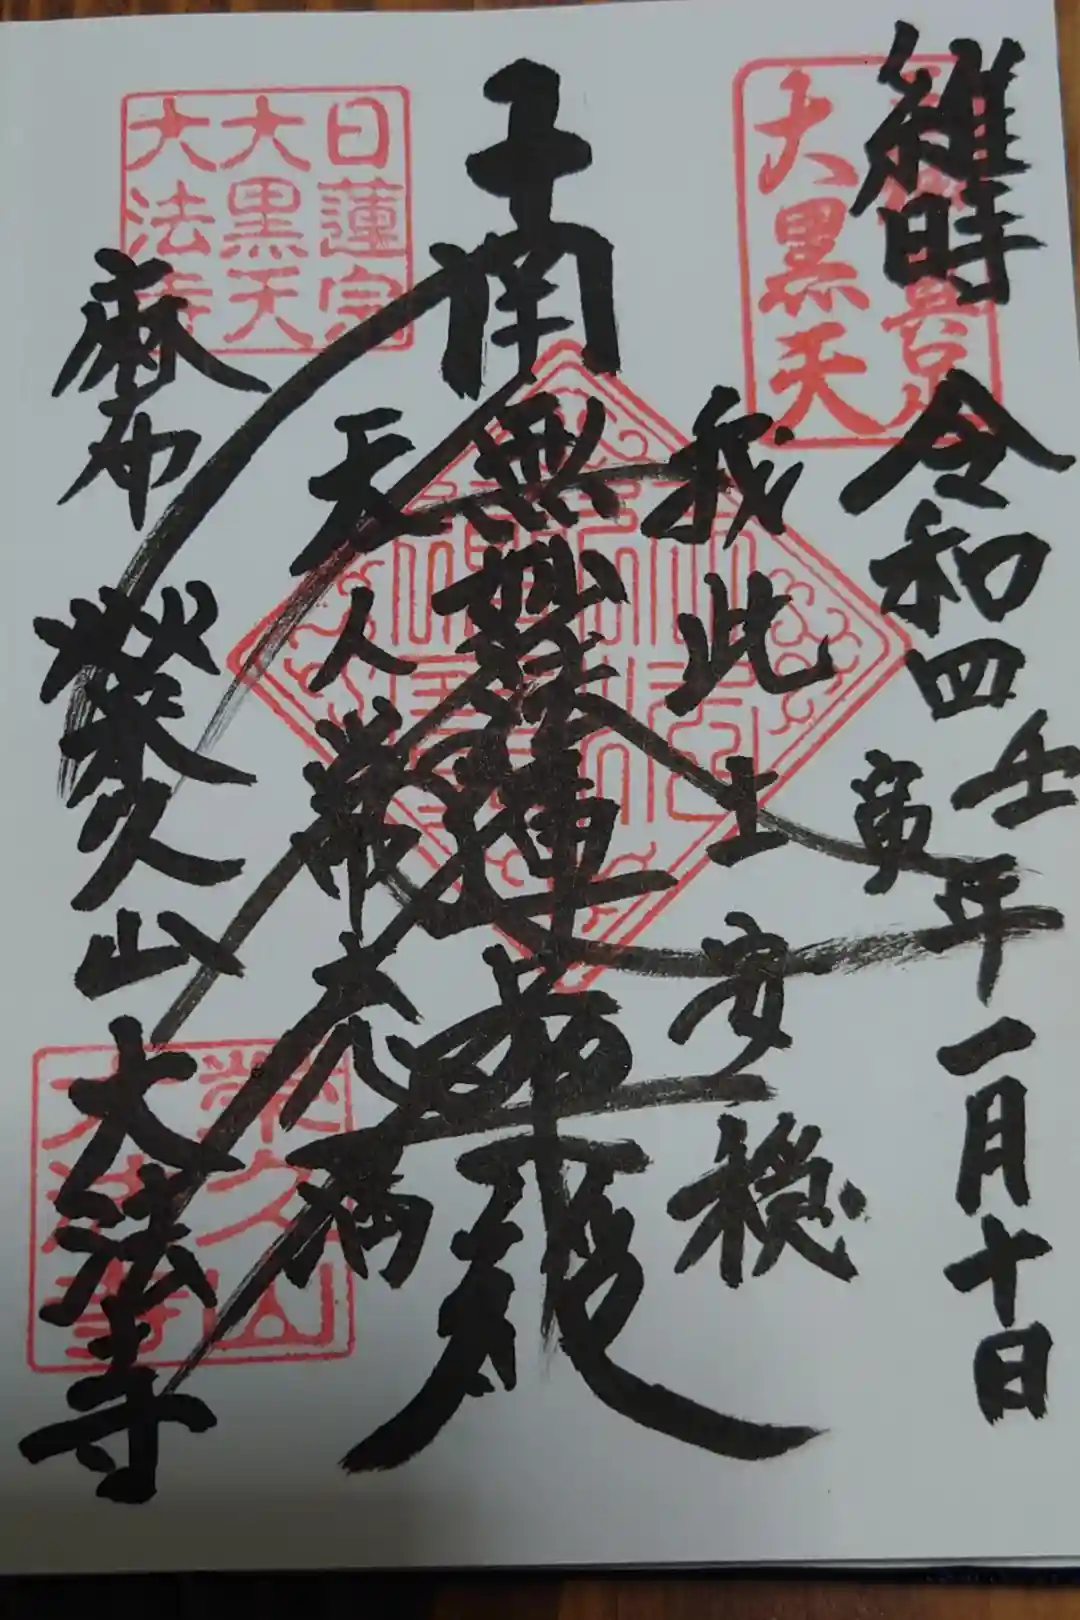 維時
令和四壬寅年一月十日
大黒天
我此土安穏
南無妙法蓮華経
天人常充満
日蓮宗
大黒天
大法寺
麻布
榮久山
大法寺
榮久山
大法寺